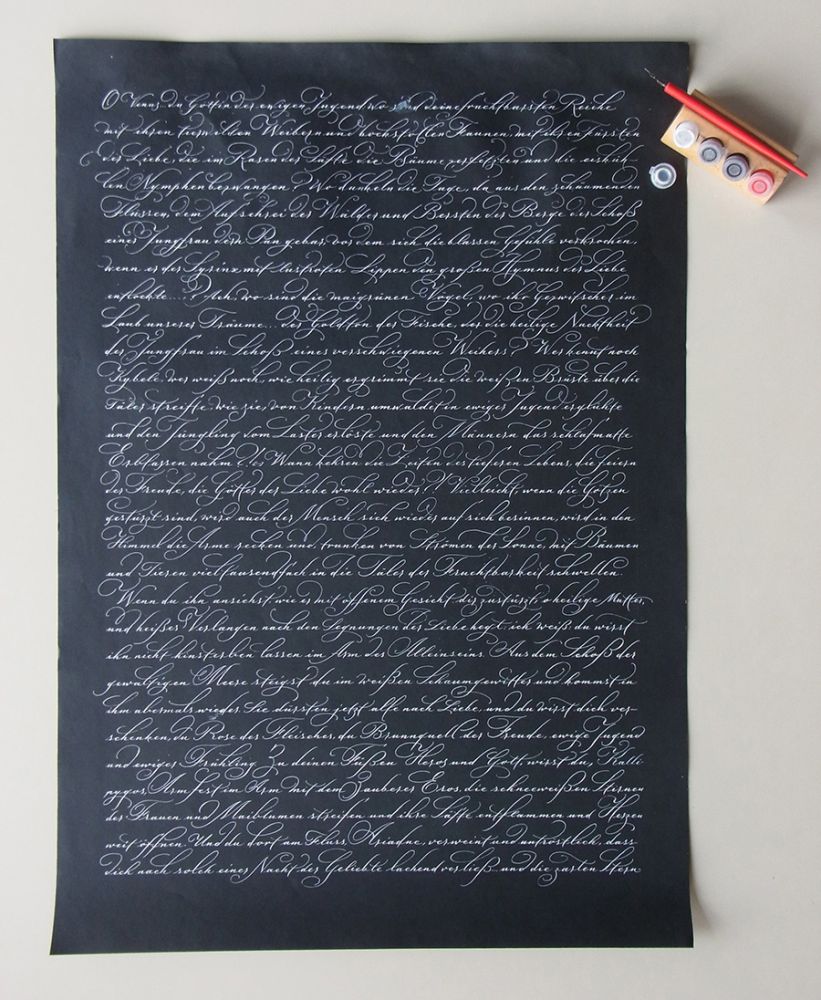 O Venus, du Göttin der ewigen Jugend wo sind deine fruchtbarsten Reiche
mit ihren tierwilden Weibern und bockstollen Faunen, mit ihren Fürsten
der Liebe, die im Rasen der Säfte die Bäume zerfetzten und die eisküh-
len Nymphen bezwangen? Wo dunkeln die Tage, da aus den schäumenden
Flüssen, dem Aufschrei der Wälder und Bersten der Berge der Schoß
einer Jungfrau den Pan gebar, vor dem sich die blassen Gefühle verkrochen,
wenn er der Syrinx mit lustroten Lippen den großen Hymnus der Liebe
entlockte....? Ach, wo sind die maigrünen Vögel, wo ihr Gezwitscher im
Laub unserer Träume... der Goldton der Fische, der die heilige Nacktheit
der Jungfrau im Schoß eines verschwiegenen Weihers? Wer kennt noch
Kybele, wer weiß noch, wie heilig ergrimmt sie die weißen Brüste über die
Täler streifte, wie sie, von Kindern umwaldet in ewiger Jugend erglühte
und den Jüngling vom Laster erlöste und den Männern das schlafmatte
Erblassen nahm? Wann kehren die Zeiten des tieferen Lebens, die Feiern
der Freude, die Götter der Liebe wohl wieder? Vielleicht, wenn die Götzen
gestürzt sind, wird auch der Mensch sich wieder auf sich besinnen, wird in den
Himmel die Arme recken und, trunken von Strömen der Sonne, mit Bäumen
und Tieren vieltausendfach in die Täler der Fruchtbarkeit schwellen.
Wenn du ihn ansiehst wie er mit offenem Gesicht dir zustürzt o heilige Mutter,
und heißes Verlangen nach den Segnungen der Liebe hegt ich weiß: du wirst
ihn nicht hinsterben lassen im Arm des Alleinseins. Aus dem Schoß der
gewaltigen Meere steigst du im weißen Schaumgewitter und kommst in
ihm abermals wieder. Sie dürsten jetzt alle nach Liebe, und du wirst dich ver-
schenken, du Rose des Fleisches, du Brunnquell der Freude, ewige Jugend
und ewiger Frühling. Zu deinen Füßen Heros und Golf, wirst du, Kalli
pygos, Arm fest im Arm mit dem Zauberer Eros, die schneeweißen Stirnen
der Frauen und Maiblumen streifen und ihre Säfte entflammen und Herzen
weit öffnen. Und du dort am Fluss, Ariadne, verweint und untröstlich, dass
dich nach solch einer Nacht der Geliebte lachend verließ... und die zarten Stern